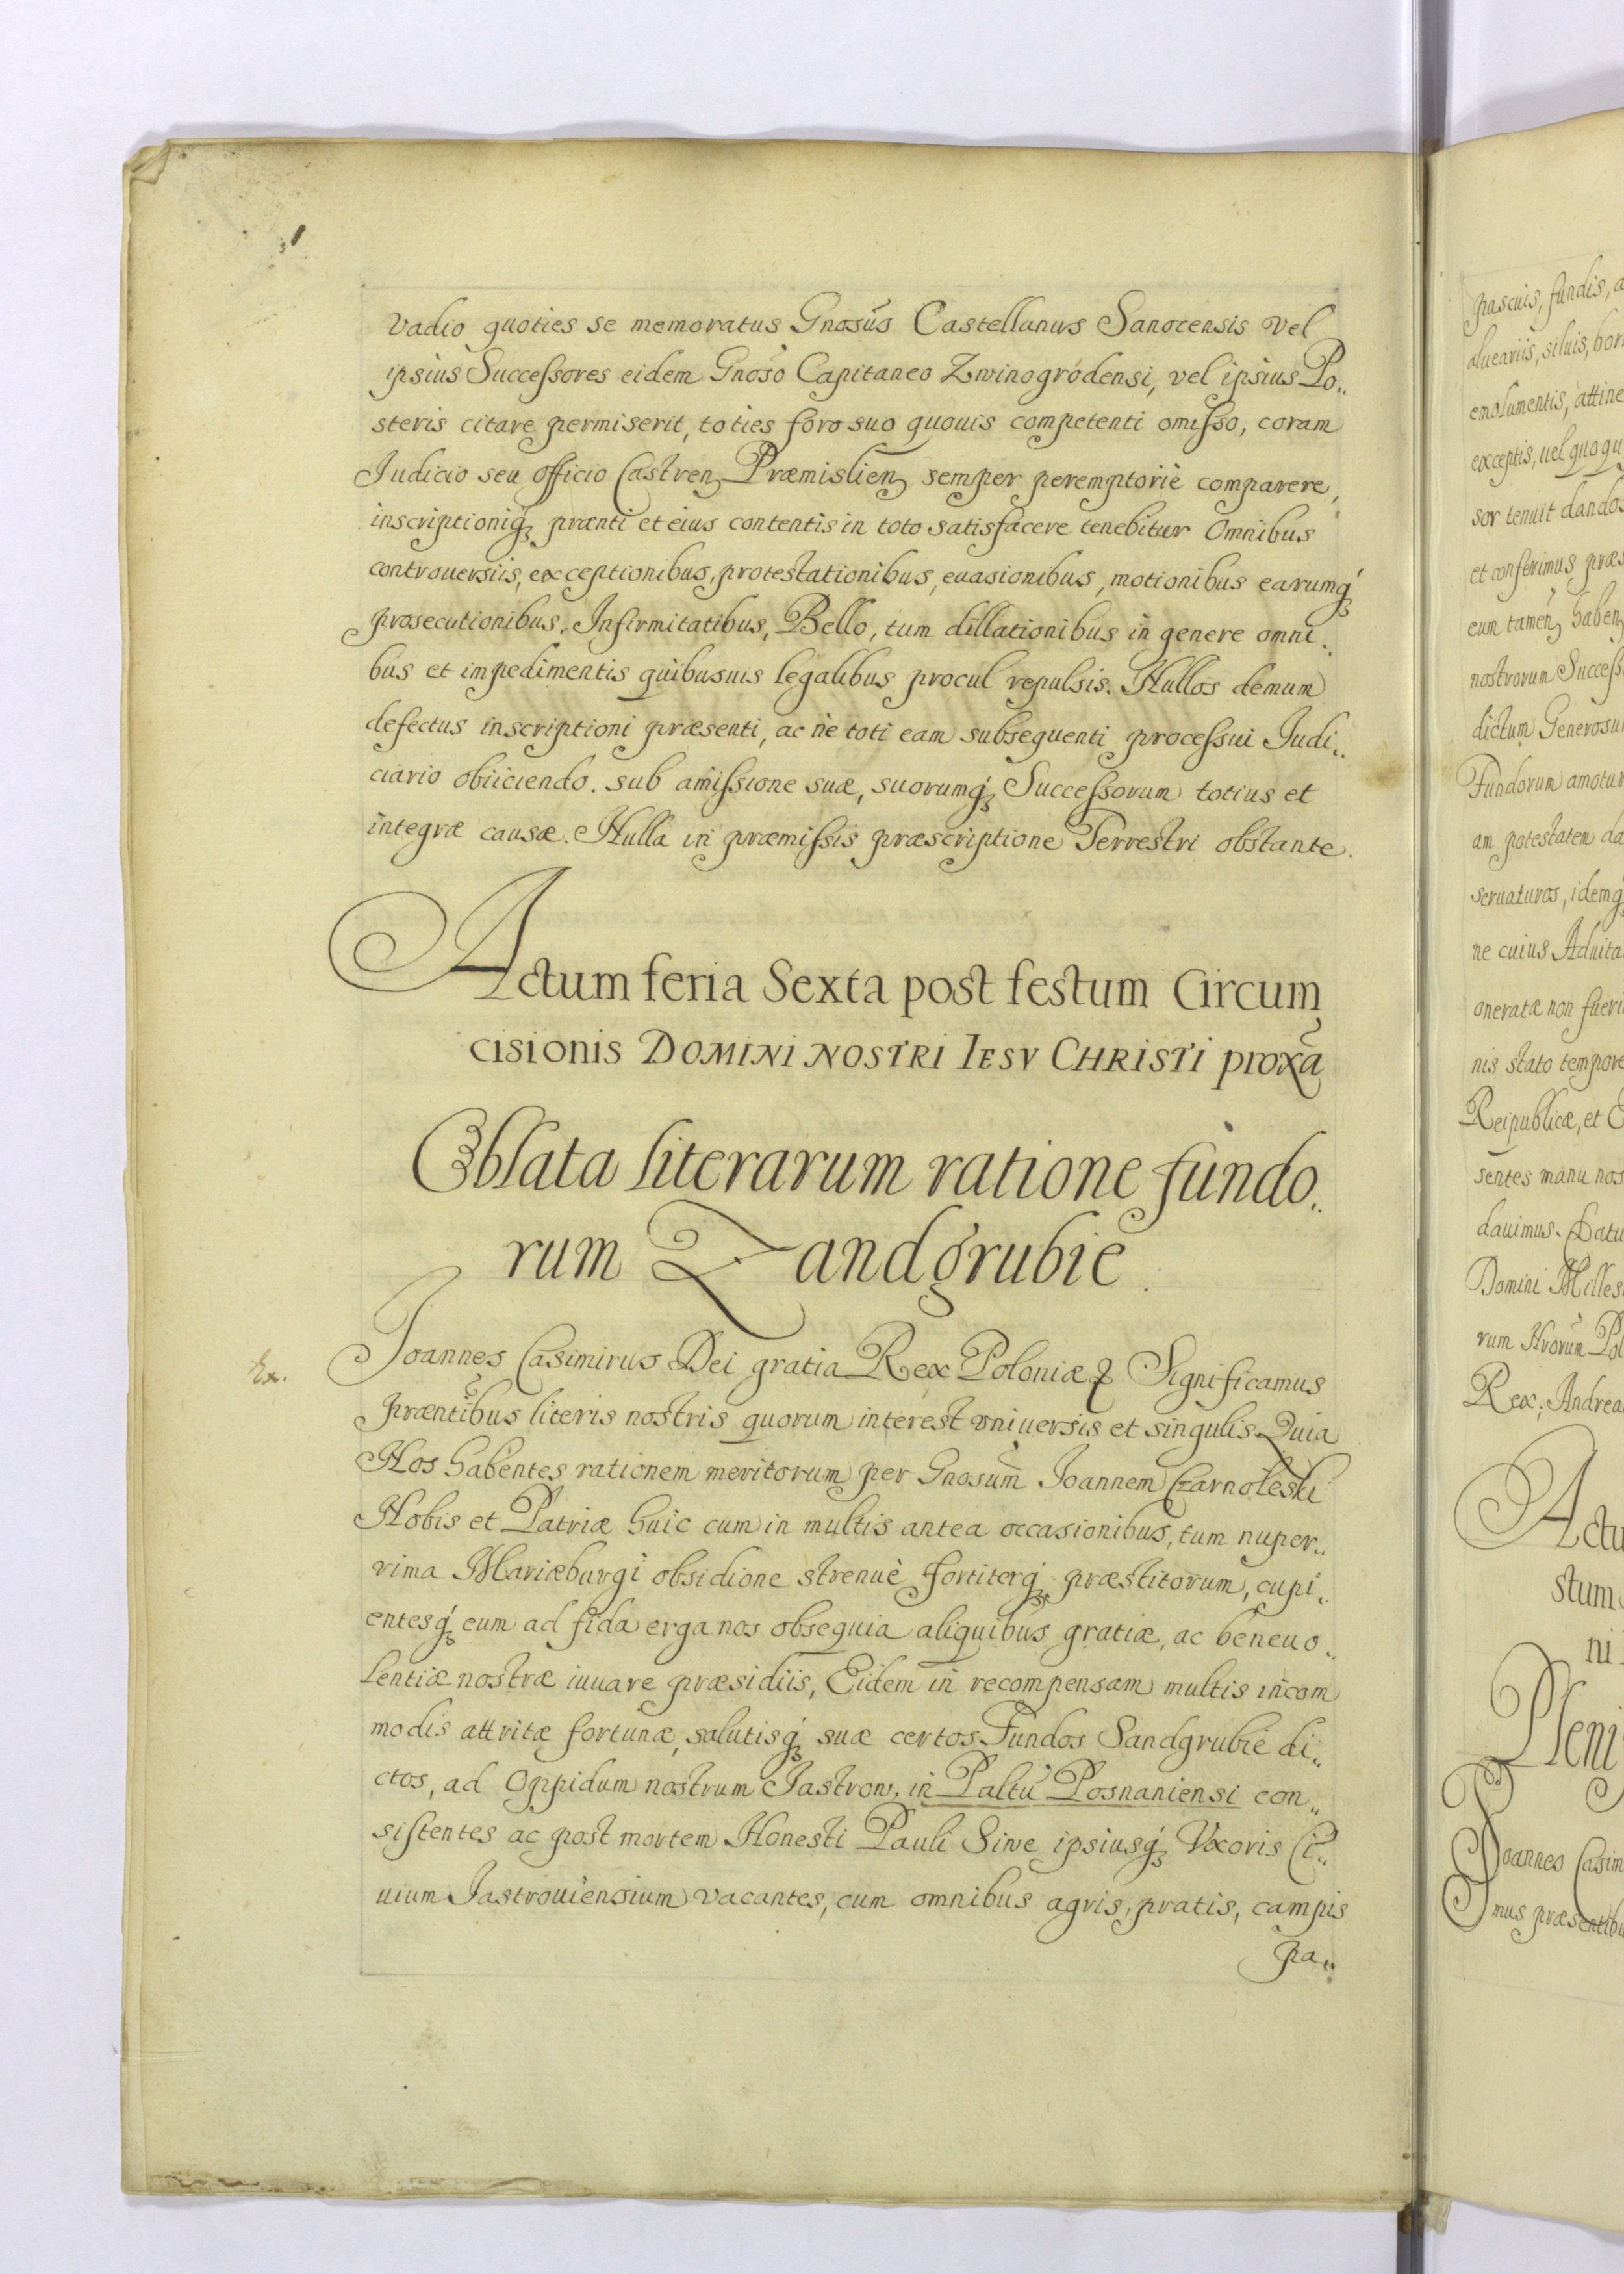 vadio quoties se memoratus Gnosus Castellanus Sanocensis vel
ipsius Successores eidem Gnoso Capitaneo Zwinogrodensi, vel ipsius Po..
steris citare permiserit, toties foro suo quouis competenti omisso, coram
Iudicio seu officio Castren Præmislien semper peremptoriè comparere,
inscriptioniq prænti et eius contentis in toto satisfacere tenebitur Omnibus
controuersiis, exceptionibus, protestationibus, euasionibus, motionibus earumq
prosecutionibus, Infirmitatibus, Bello, tum dillationibus in genere omni..
bus et impedimentis quibusuis legalibus procul repulsis. Nullos demum
defectus inscriptioni præsenti, ac nè toti eam subsequenti processui Iudi..
ciario obiiciendo. sub amissione suæ, suorumq Successorum totius et
integræ causæ. Nulla in præmissis præscriptione Terrestri obstante.
Actum feria Sexta post festum Circum
cisionis DOMINI NOSTRI IESV CHRISTI proxa
Oblata literarum ratione fundo..
rum Zandgrubie
Ex.
Joannes Casimirus Dei gratia Rex Poloniæ & Significamus
Præntibus literis nostris quorum interest vniuersis et singulis Quia
Nos habentes rationem meritorum per Gnosum Joannem Czarnoleski
Nobis et Patriæ huic cum in multis antea occasionibus, tum nuper..
rima Mariæburgi obsidione strenuè fortiterq præstitorum, cupi..
entesq eum ad fida erga nos obsequia aliquibus gratiæ, ac beneuo..
lentiæ nostræ iuuare præsidiis, Eidem in recompensam multis incom
modis attritæ fortunæ, salutisq suæ certos Fundos Sandgrubie di..
ctos, ad Oppidum nostrum Jastrow, in Paltu Posnaniensi con..
sistentes ac post mortem Honesti Pauli Siwe ipsiusq Vxoris Ci..
uium Jastrouiensium vacantes, cum omnibus agris, pratis, campis
pa..
pascuis, fundis,
aluearis, siluis,
emolumentis,
exceptis, uel
sor tenuit dandos
et conferimus
eum tamen haben
nostrorum
dictum
Fundorum
am potestatem
seruaturos, idemq
ne cuius
oneratæ non
nis stato tempore
Reipublicæ, et
sentes manu nos
dauimus. Datu
Domini Milles
rum
Rex, Andrea
Actu
stum
ni
Pleni
Joannes Casim
mus præsentibu